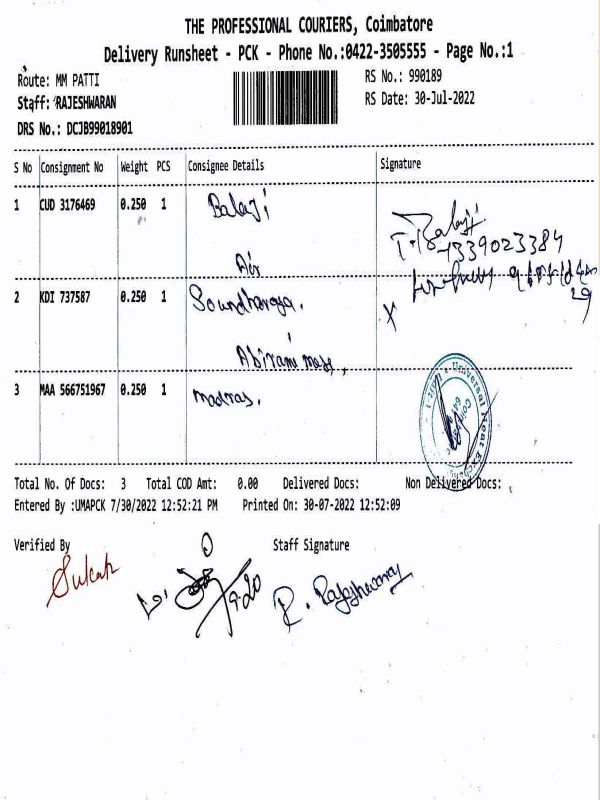 THE PROFESSIONAL COURIERS, Coimbatore
Delivery Runsheet - PCK - Phone No.:0422-3505555 - Page No.:1
Route: MM PATTI RS No.: 990189
Staff: RAJESHWARAN RS Date: 30-Jul-2022
DRS No.: DCJB99018901
S No Consignment No Weight PCS Consignee Details Signature
1 CUD 3176469 0.250 1 Balaji
T. Balaji
7339023384
Air
2 KDI 737587 0.250 1 Soundharya.
X
3 MAA 566751967 0.250 1 madras.
Total No. Of Docs: 3 Total COD Amt: 0.00 Delivered Docs: Non Delivered Docs:
Entered By :UMAPCK 7/30/2022 12:52:21 PM Printed On: 30-07-2022 12:52:09
Verified By Staff Signature
R. Rajeshwaran
9.20